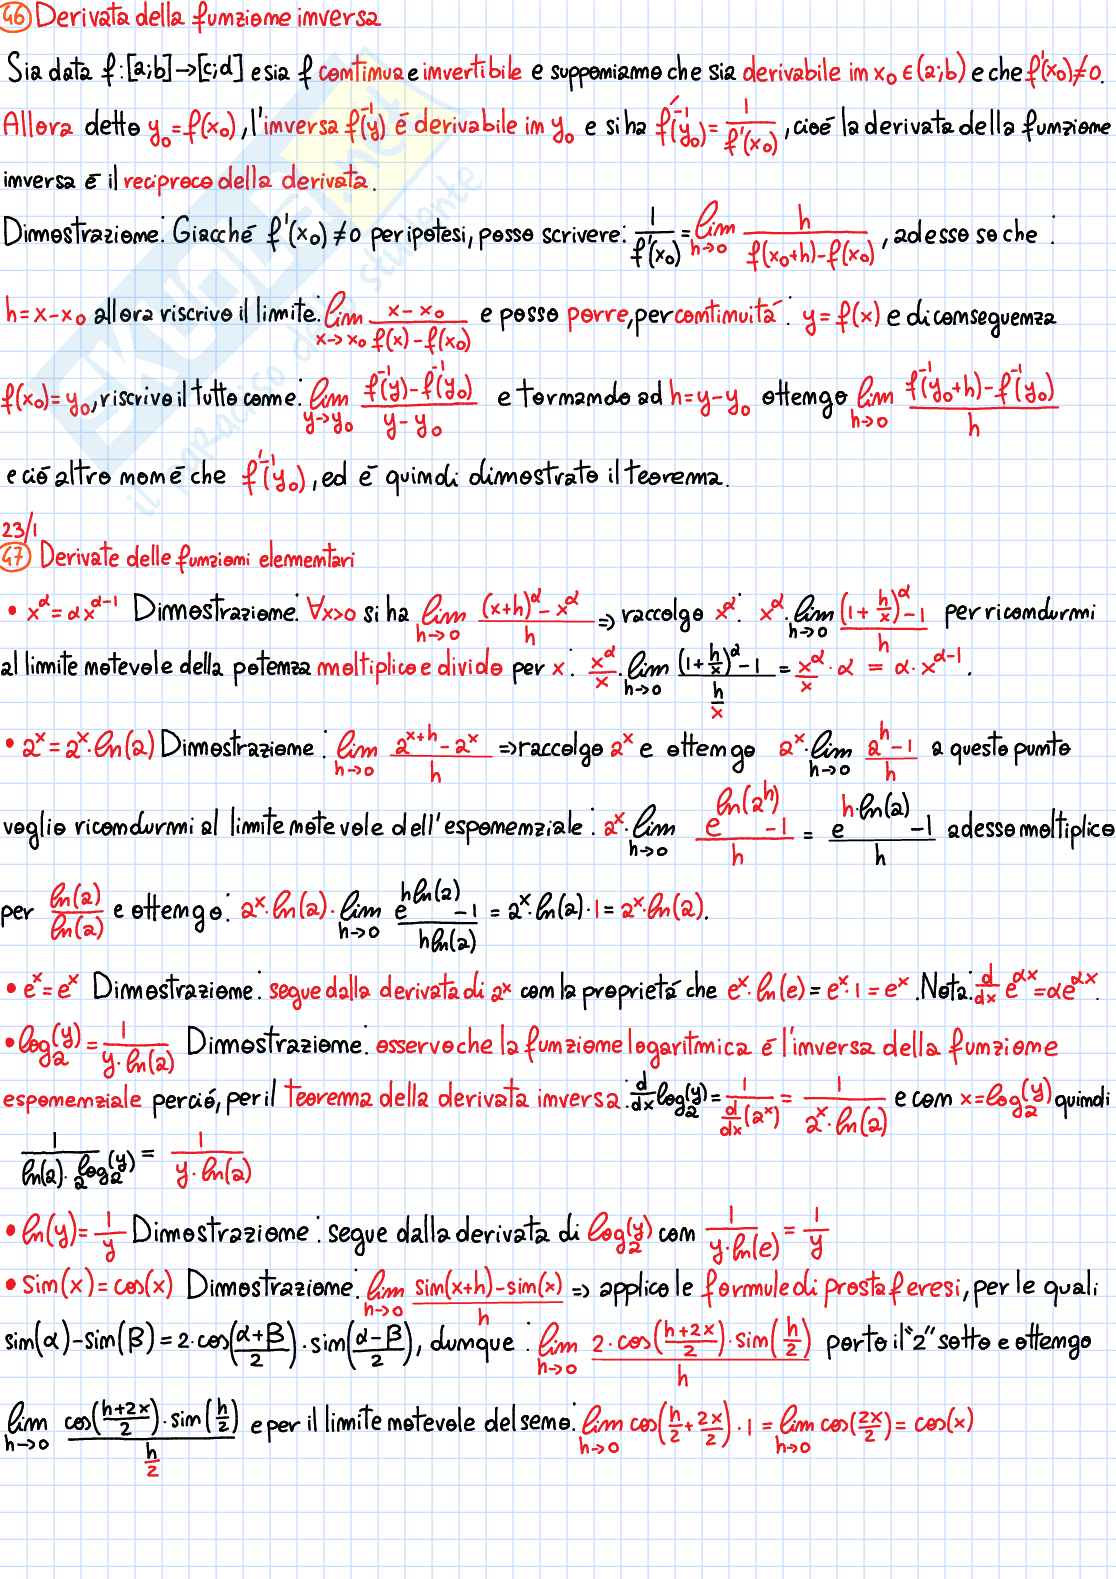 46 Derivata della funzione inversa
Sia data f:[a;b]→[c;d] e sia f continua e invertibile e supponiamo che sia derivabile in x₀∈(a;b) e che f'(x₀)≠0.
Allora detto y₀=f(x₀), l'inversa f⁻¹(y) é derivabile in y₀ e si ha f⁻¹'(y₀)=1/f'(x₀), cioé la derivata della funzione
inversa é il reciproco della derivata.
Dimostrazione: Giacché f'(x₀)≠0 per ipotesi, posso scrivere: 1/f'(x₀)=lim h→0 h/(f(x₀+h)-f(x₀)), adesso so che:
h=x-x₀ allora riscrivo il limite: lim x→x₀ (x-x₀)/(f(x)-f(x₀)) e posso porre, per continuitá: y=f(x) e di conseguenza
f(x₀)=y₀, riscrivo il tutto come: lim y→y₀ (f⁻¹(y)-f⁻¹(y₀))/(y-y₀) e tornando ad h=y-y₀ ottengo lim h→0 (f⁻¹(y₀+h)-f⁻¹(y₀))/h
e ció altro non é che f⁻¹'(y₀), ed é quindi dimostrato il teorema.
23/1
47 Derivate delle funzioni elementari
• x^α=αx^(α-1) Dimostrazione: ∀x>0 si ha lim h→0 ((x+h)^α-x^α)/h ⇒ raccolgo x^α: x^α·lim h→0 ((1+h/x)^α-1)/h per ricondurmi
al limite notevole della potenza moltiplico e divido per x: x^α/x·lim h→0 ((1+h/x)^α-1)/(h/x)=x^α/x·α=α·x^(α-1).
• a^x=a^x·ln(a) Dimostrazione: lim h→0 (a^(x+h)-a^x)/h ⇒ raccolgo a^x e ottengo a^x·lim h→0 (a^h-1)/h a questo punto
voglio ricondurmi al limite notevole dell'esponenziale: a^x·lim h→0 (e^(ln(a^h))-1)/h = (e^(h·ln(a))-1)/h adesso moltiplico
per ln(a)/ln(a) e ottengo: a^x·ln(a)·lim h→0 (e^(hln(a))-1)/(hln(a))=a^x·ln(a)·1=a^x·ln(a).
• e^x=e^x Dimostrazione: segue dalla derivata di a^x con la proprietá che e^x·ln(e)=e^x·1=e^x. Nota: d/dx e^(αx)=αe^(αx).
• logₐ(y)=1/(y·ln(a)) Dimostrazione: osservo che la funzione logaritmica é l'inversa della funzione
esponenziale perció, per il teorema della derivata inversa: d/dx logₐ(y)=1/(d/dx(a^x))=1/(a^x·ln(a)) e con x=logₐ(y) quindi
1/(ln(a)·a^(logₐ(y)))=1/(y·ln(a))
• ln(y)=1/y Dimostrazione: segue dalla derivata di logₐ(y) con 1/(y·ln(e))=1/y
• sin(x)=cos(x) Dimostrazione: lim h→0 (sin(x+h)-sin(x))/h ⇒ applico le formule di prostaferesi, per le quali
sin(α)-sin(β)=2·cos((α+β)/2)·sin((α-β)/2), dunque: lim h→0 (2·cos((h+2x)/2)·sin(h/2))/h porto il "2" sotto e ottengo
lim h→0 (cos((h+2x)/2)·sin(h/2))/(h/2) e per il limite notevole del seno: lim h→0 cos(h/2+2x/2)·1=lim h→0 cos(2x/2)=cos(x)